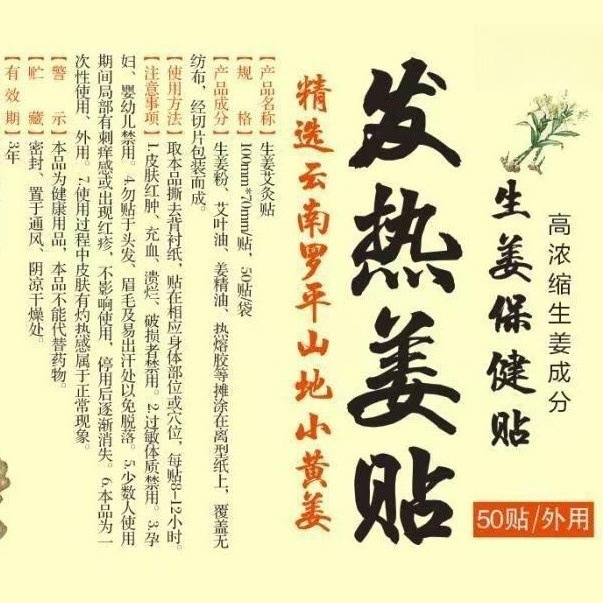 高浓缩生姜成分
生姜保健贴
50贴/外用
发热姜贴
精选云南罗平山地小黄姜
【产品名称】生姜艾灸贴
【规 格】100mm*70mm/贴，50贴/袋
【产品成分】生姜粉、艾叶油、姜精油、热熔胶等摊涂在离型纸上，覆盖无
纺布，经切片包装而成。
【使用方法】取本品撕去背衬纸，贴在相应身体部位或穴位，每贴8-12小时。
【注意事项】1.皮肤红肿、充血、溃烂、破损者禁用。2.过敏体质禁用。3.孕
妇、婴幼儿禁用。4.勿贴于头发、眉毛及易出汗处以免脱落。5.少数人使用
期间局部有刺痒感或出现红疹，不影响使用，停用后逐渐消失。6.本品为一
次性使用、外用。7.使用过程中皮肤有灼热感属于正常现象。
【警 示】本品为健康用品，本品不能代替药物。
【贮 藏】密封、置于通风、阴凉干燥处。
【有 效 期】3年